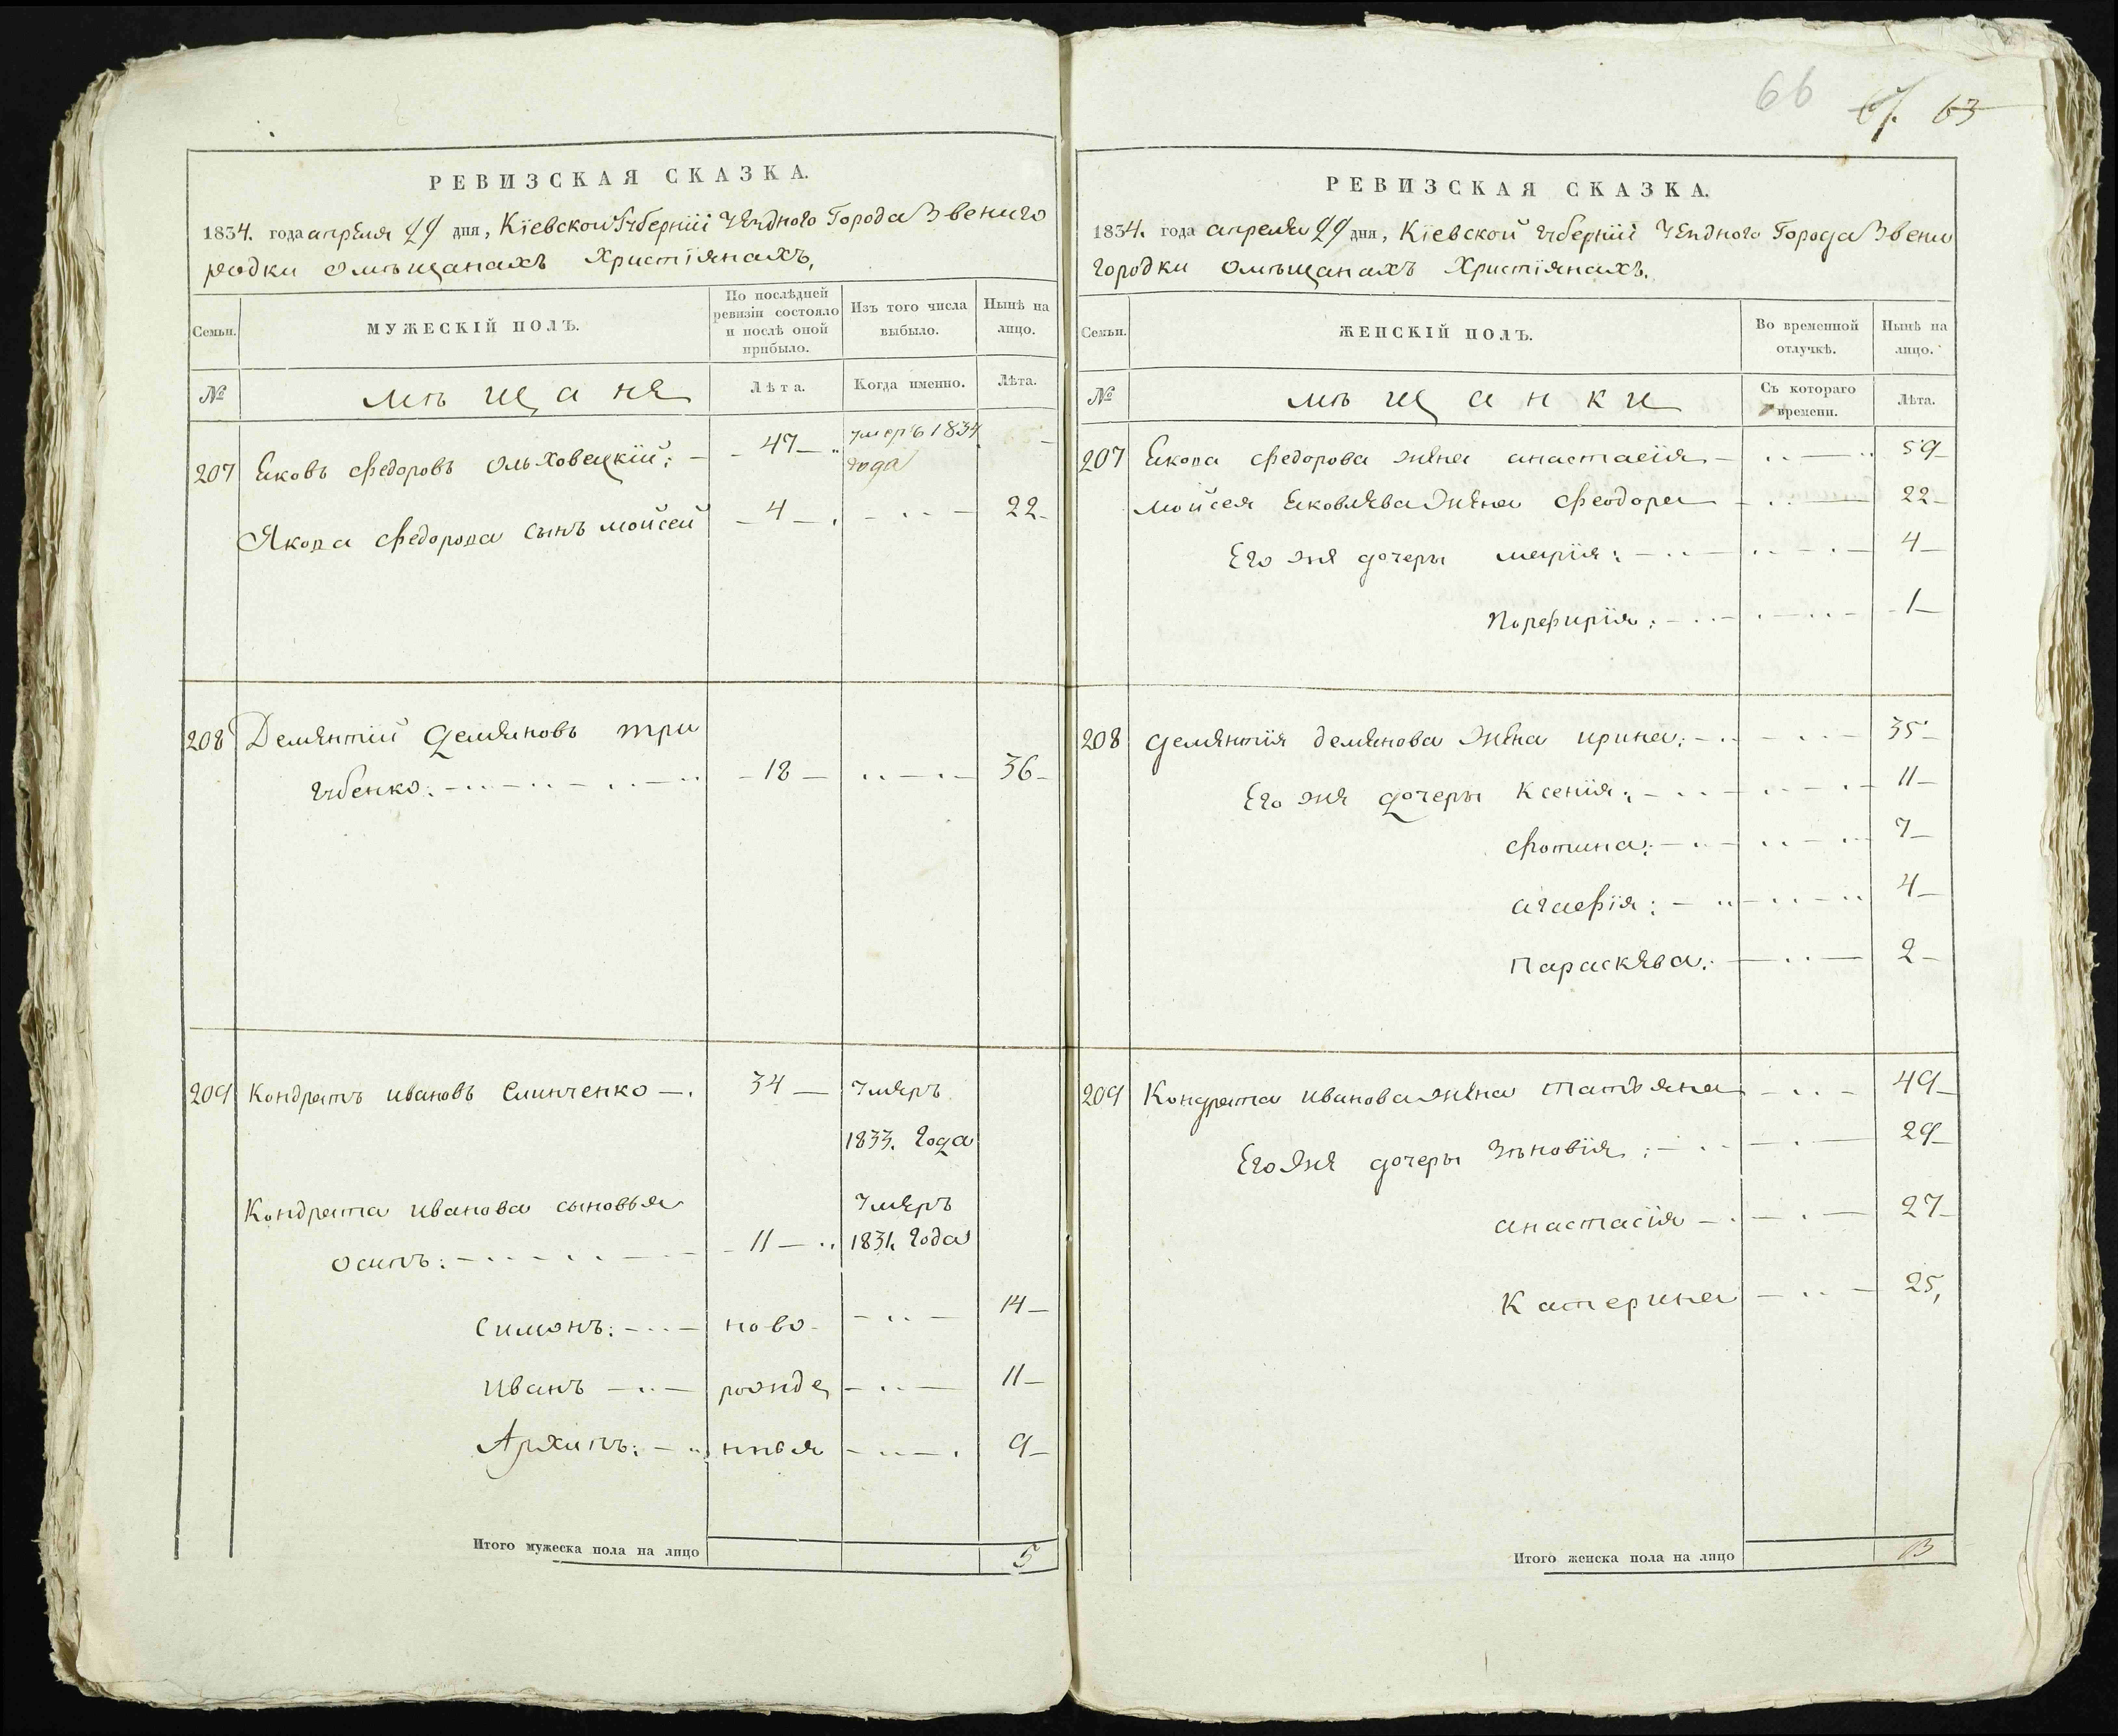 66 67. 63
РЕВИЗСКАЯ СКАЗКА.
1834. года апреля 29 дня, Кіевской Губерніи Уезднаго Города Звениго
родки о мѣщанахъ Христіянахъ,
Семьи.
МУЖЕСКІЙ ПОЛЪ.
По послѣдней ревизіи состояло и послѣ оной прибыло.
Изъ того числа выбыло.
Нынѣ на лицо.
№
мѣщане
Лѣта.
Когда именно.
Лѣта.
207 Яковъ Федоровъ Ольховецкій: 47 умеръ 1834
года
Якова Федорова сынъ Мойсей 4 22
208 Демянтій Демяновъ Три
губенко: 18 36
209 Кондратъ Ивановъ 34 умеръ
1833. года
Кондрата Иванова сыновья умеръ
Осипъ: 11 1831. года
Симонъ: ново 14
Иванъ рожде 11
Архипъ: нныя 9
Итого мужеска пола на лицо 5
РЕВИЗСКАЯ СКАЗКА.
1834. года апреля 29 дня, Кіевской Губерніи Уездного Города Звени
городки о мѣщанахъ Христіянахъ.
Семьи.
ЖЕНСКІЙ ПОЛЪ.
Во временной отлучкѣ.
Нынѣ на лицо.
№
мѣщанки
Съ котораго времени.
Лѣта.
207 Якова Федорова жена анастасія 59
Мойсея Яковлева жена Феодора 22
Его же дочеры марія: 4
Порфирія: 1
208 Демянтія Демянова жена ирина: 35
Его же дочеры Ксенія: 11
Фотина: 7
агафія: 4
Параскева: 2
209 Кондрата Иванова жена Татьяна 49
Его же дочеры Зѣновія: 29
анастасія 27
Катерина 25,
Итого женска пола на лицо 13